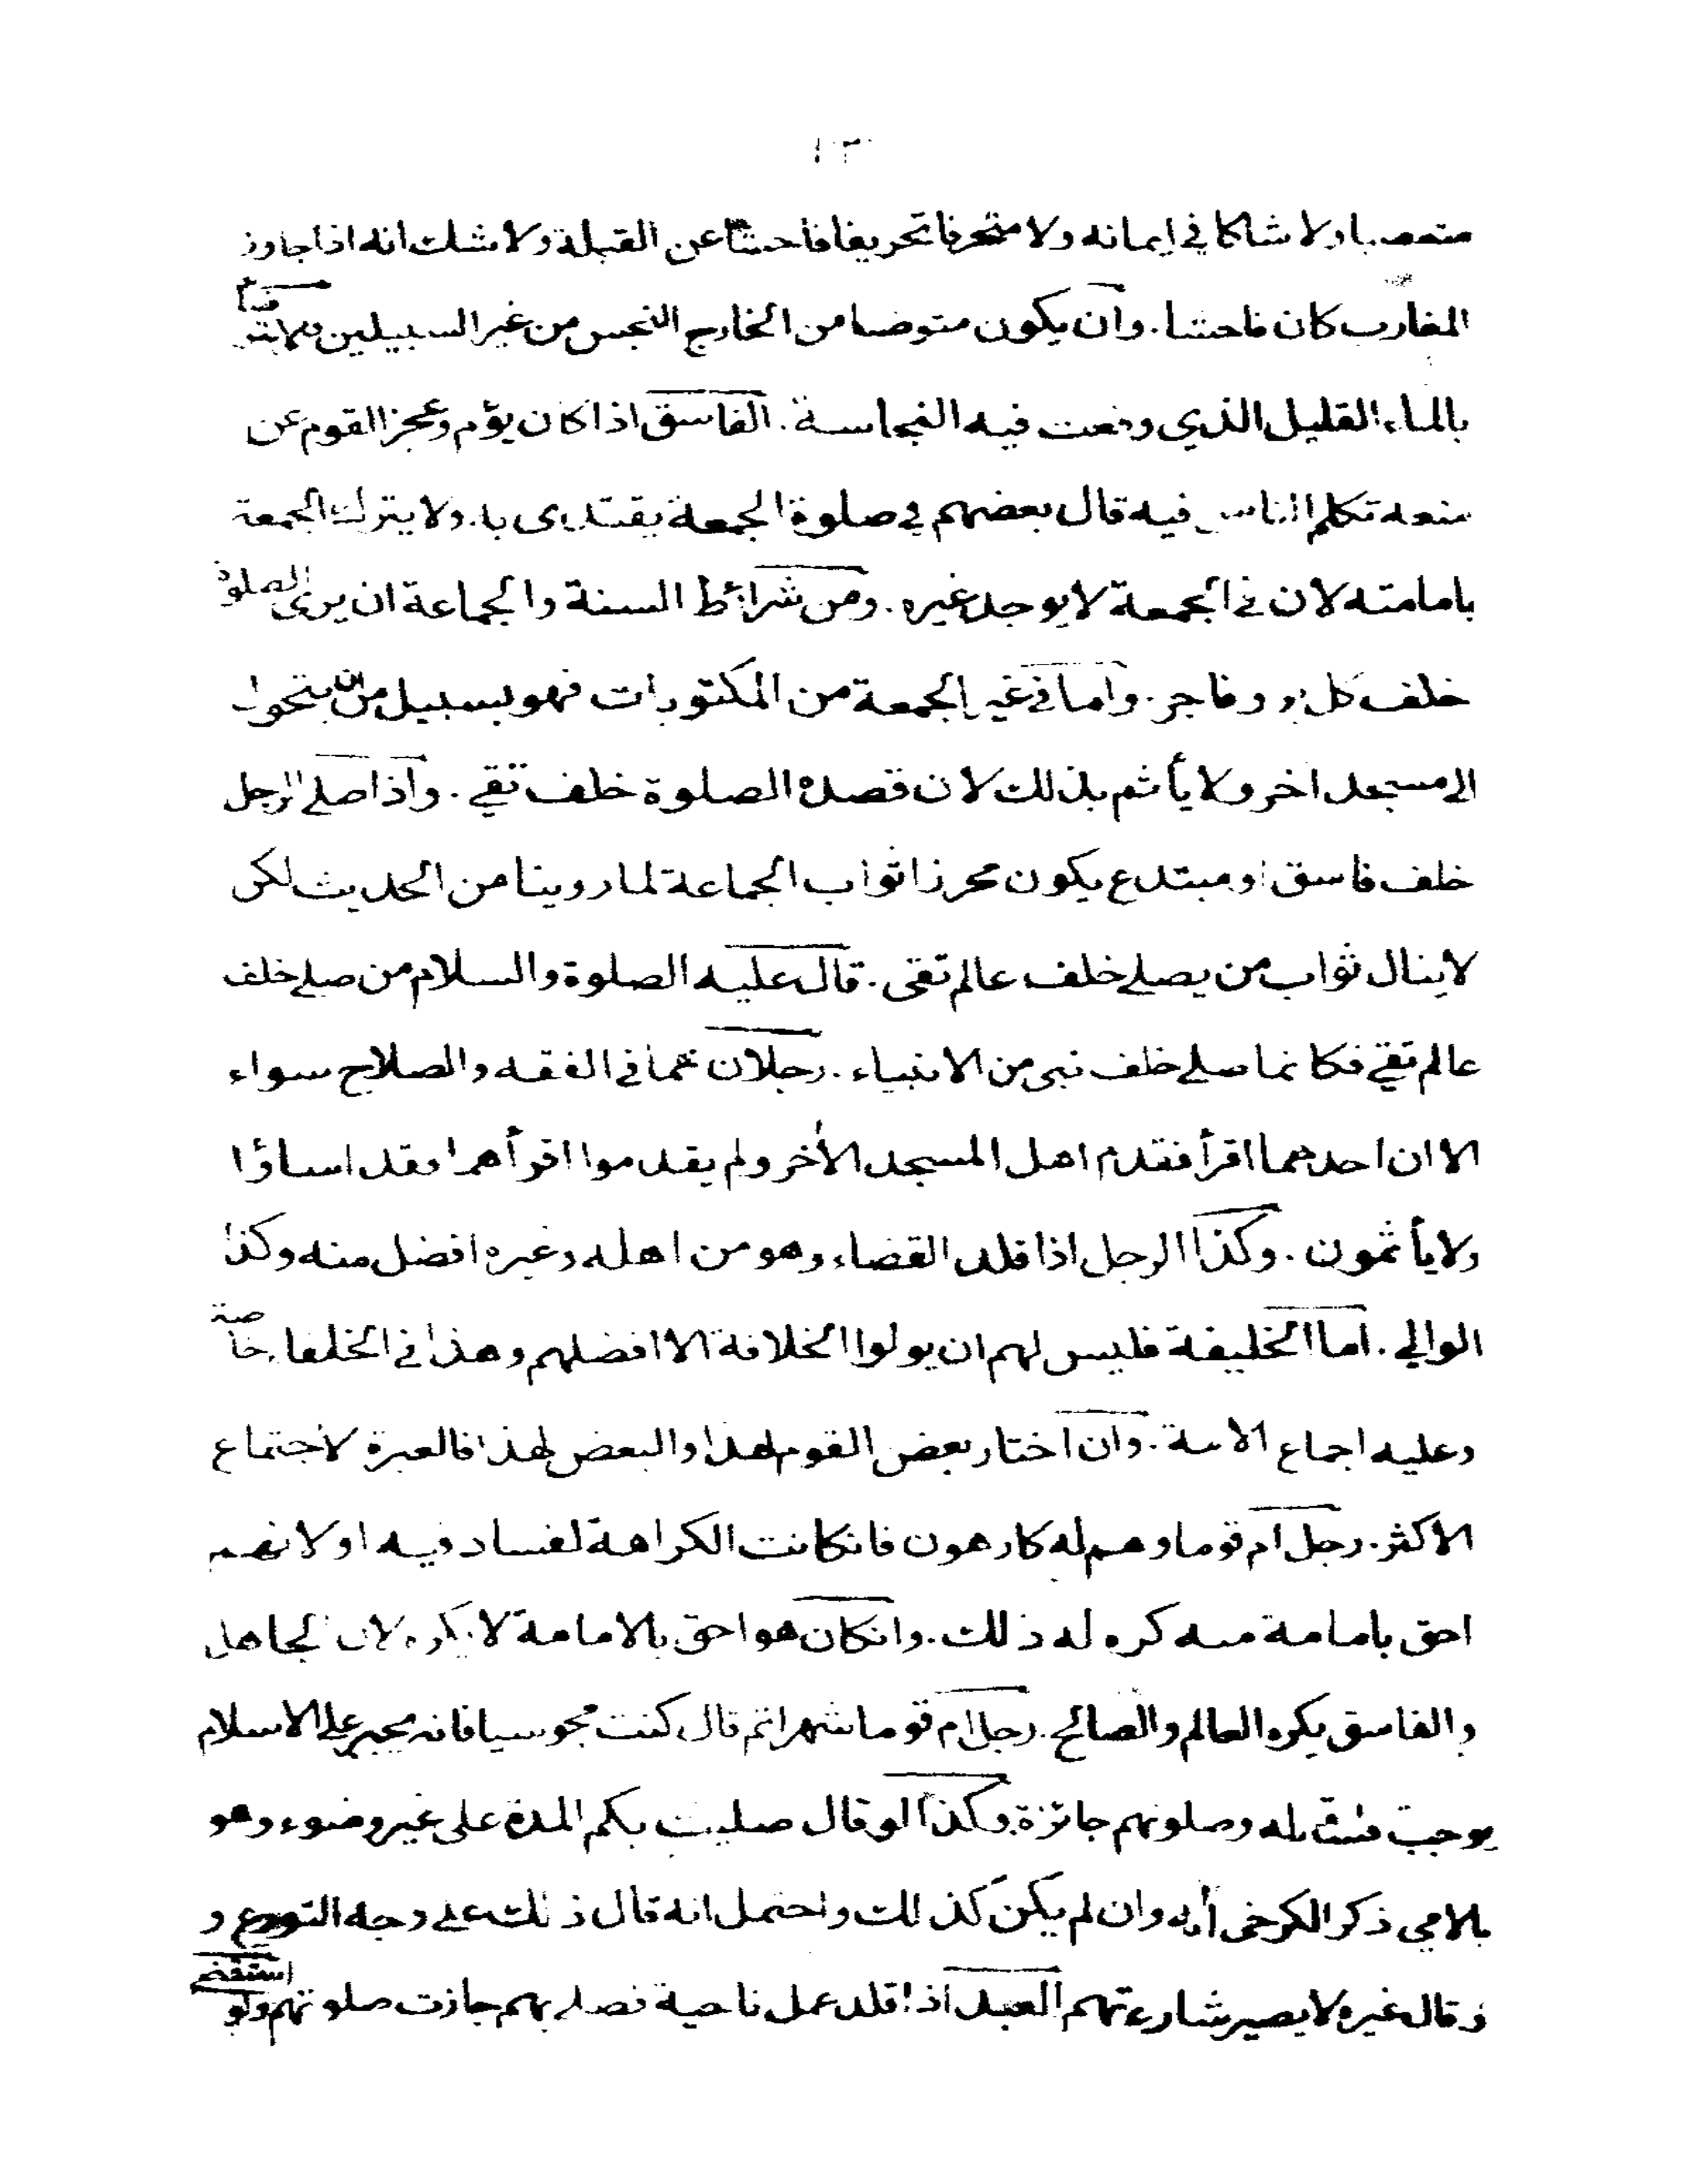 ١٣
متعصبا ولا شاكا في ايمانه ولا منحرفا تحريفا فاحشا عن القبلة ولا شك انه اذا جاوز
المغارب كان فاحشا. وان يكون متوضئا من الخارج النجس من غير السبيلين ولا يتوضأ
بالماء القليل الذي وقعت فيه النجاسة. الفاسق اذا كان يؤم وعجز القوم عن
منعه تكلم الناس فيه قال بعضهم في صلوة الجمعة يقتدى به ولا يترك الجمعة
بامامته لان في الجمعة لا يوجد غيره. ومن شرائط السنة والجماعة ان يرى الصلوة
خلف كل بر وفاجر. واما في غير الجمعة من المكتوبات فهو بسبيل من ان يتحول
الى مسجد اخر ولا يأثم بذلك لان قصده الصلوة خلف تقي. واذا صلى الرجل
خلف فاسق او مبتدع يكون محرزا ثواب الجماعة لما روينا من الحديث لكن
لا ينال ثواب من يصلي خلف عالم تقى. قال عليه الصلوة والسلام من صلى خلف
عالم تقي فكانما صلى خلف نبى من الانبياء. رجلان هما في الفقه والصلاح سواء
الا ان احدهما اقرأ فقدم اهل المسجد الأخر ولم يقدموا اقرأهما فقد اساؤا
ولا يأثمون. وكذا الرجل اذا قلد القضاء وهو من اهله وغيره افضل منه وكذا
الوالي. اما الخليفة فليس لهم ان يولوا الخلافة الا افضلهم وهذا في الخلفاء خاصة
وعليه اجماع الامة. وان اختار بعض القوم لهذا والبعض لهذا فالعبرة لاجتماع
الاكثر. رجل ام قوما وهم له كارهون فانكانت الكراهة لفساد فيه او لانهم
احق بامامة منه كره له ذلك. وانكان هو احق بالامامة لا يكره لان الجاهل
والفاسق يكره العالم والصالح. رجل ام قوما شهرا ثم قال كنت مجوسيا فانه يجبر على الاسلام
وصلوتهم جائزة وكذا لو قال صليت بكم المدة على غير وضوء وهو
ذكر الكرخى وان لم يكن كذلك واحتمل انه قال ذلك على وجه التورع و
وقال غيره لا يصير العبد اذا قلد عمل ناحية فصلى بهم جازت صلوتهم ولو استقضى